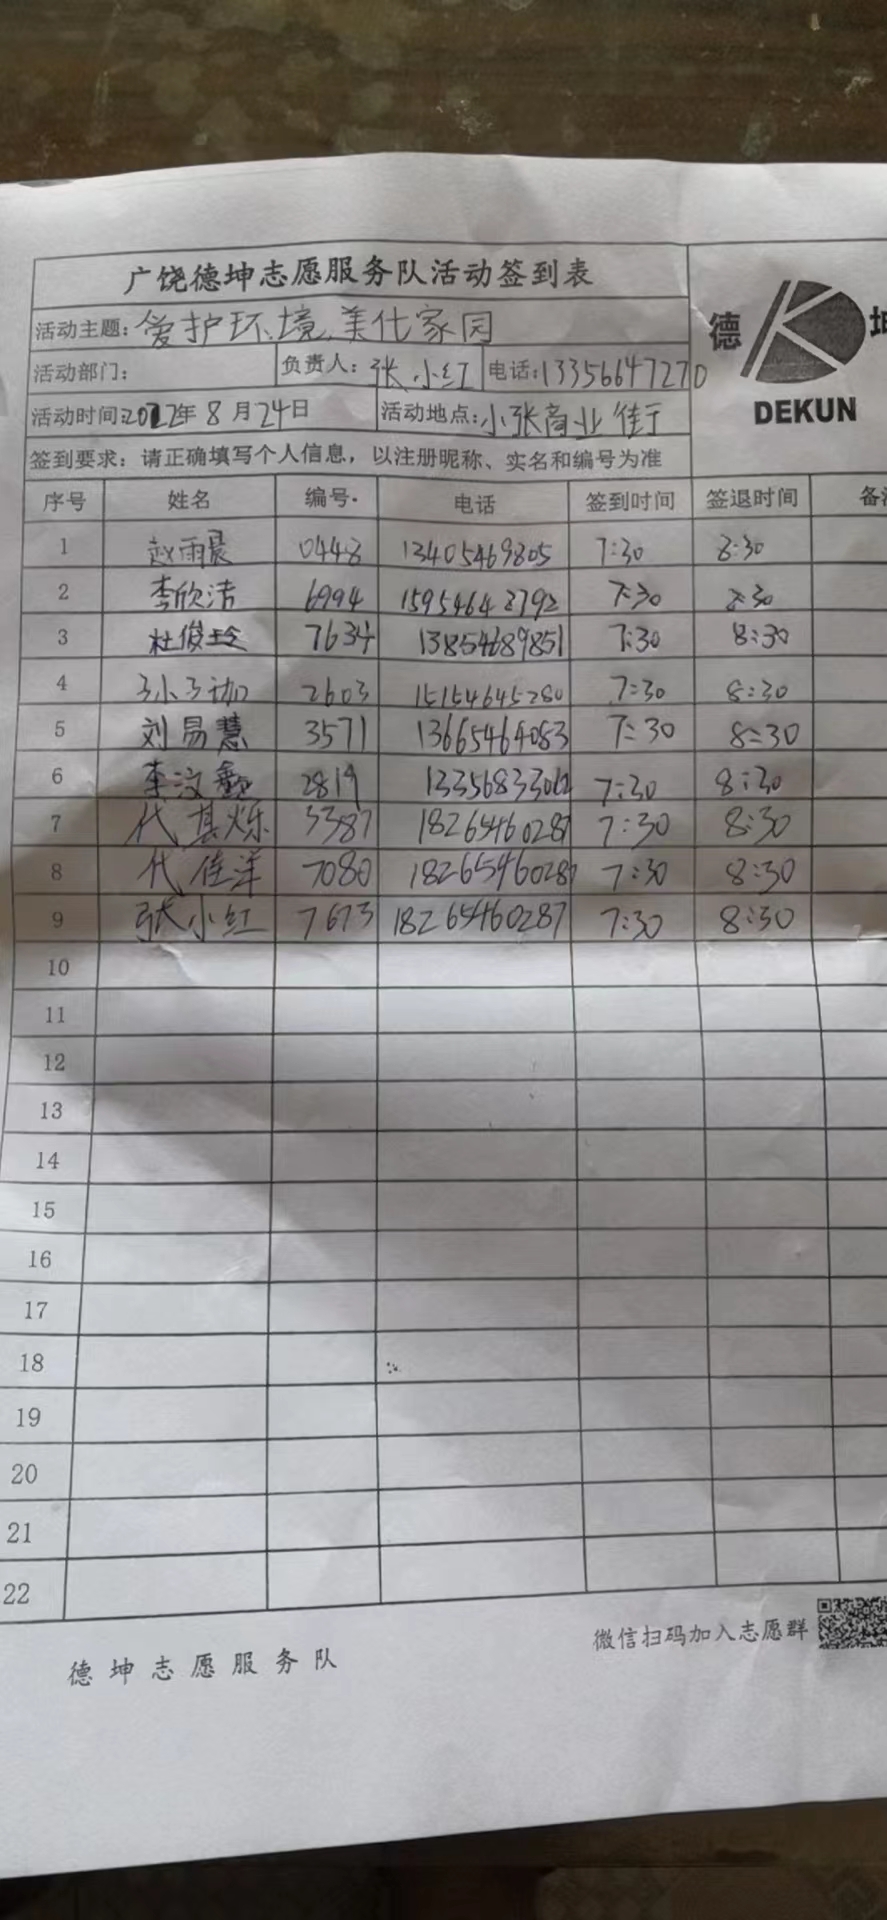 广饶德坤志愿服务队活动签到表
活动主题:爱护环境,美化家园
活动部门: 负责人:张小红 电话:13356647270
活动时间:2022年8月24日 活动地点:小张商业街
签到要求:请正确填写个人信息,以注册昵称、实名和编号为准
德 K 坤
DEKUN
序号 姓名 编号. 电话 签到时间 签退时间 备注
1 赵雨晨 0448 13405469805 7:30 8:30
2 李欣洁 6994 15954642792 7:30 8:30
3 杜俊玲 7634 13854689851 7:30 8:30
4 2603 15154645280 7:30 8:30
5 刘易慧 3571 13665464083 7:30 8:30
6 李汶鑫 2819 13356833062 7:30 8:30
7 代其烁 3387 18265460287 7:30 8:30
8 代佳洋 7080 18265460287 7:30 8:30
9 张小红 7673 18265460287 7:30 8:30
10
11
12
13
14
15
16
17
18
19
20
21
22
德坤志愿服务队
微信扫码加入志愿群